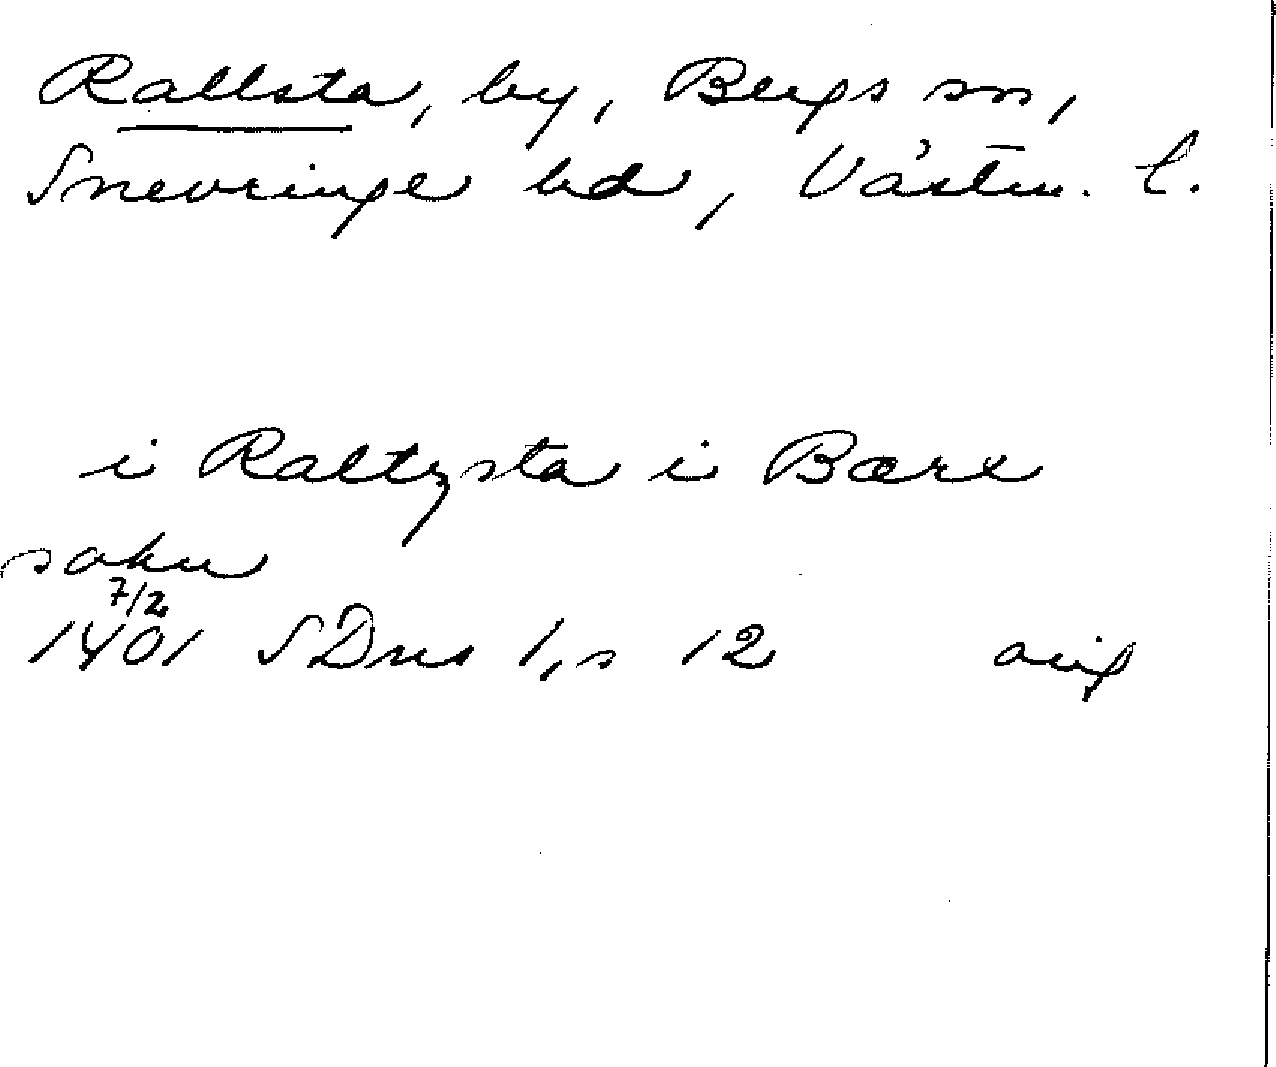 Rallsta, by, Bergs sn,
Snevringe hd, Västm. l.
i Raltzsta i Bærx
sokn
7/2
1401 SDns 1, s 12 orig